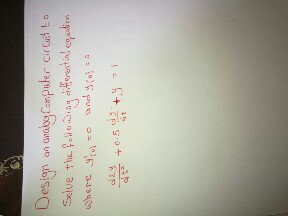 Design an analog Computer circuit to
Solve the following differential equation
where y'(0) = 0 and y(0) = 0
d2y/dt2 + 0.5 dy/dt + y = 1